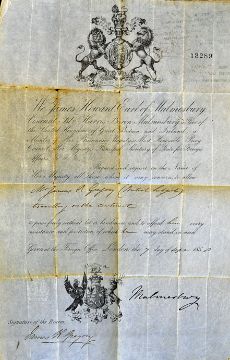 13289
We James Howard Earl of Malmesbury
Viscount Fitz Harris, Baron Malmesbury, a Peer of
the United Kingdom of Great Britain and Ireland, a
Member of Her Britannic Majesty's Most Honorable Privy
Council, Her Majesty's Principal Secretary of State for Foreign
Affairs
Request and require in the Name of
Her Majesty, all those whom it may concern to allow
Mr James R Gregory (British Subject)
travelling on the continent
to pass freely without let or hindrance and to afford him every
assistance and protection of which he may stand in need.
Given at the Foreign Office London, the 7 day of
Malmesbury
Signature of the Bearer
James R Gregory